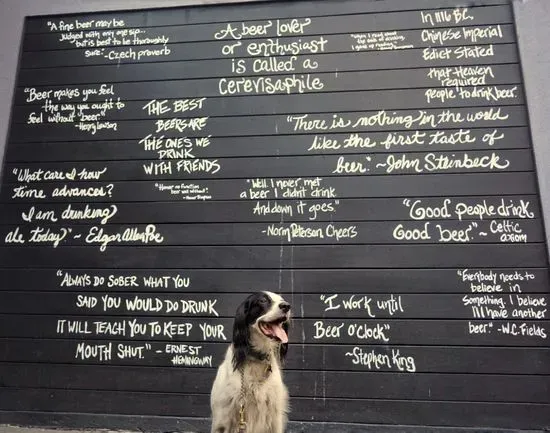 "A fine beer may be
judged with only one sip...
but is best to be thoroughly
sure." -Czech proverb
A beer lover
or enthusiast
is called a
Cerevisaphile
In 1116 BC,
Chinese Imperial
Edict Stated
that Heaven
required
people to drink beer.
"Beer makes you feel
the way you ought to
feel without beer"
-Henry Lawson
THE BEST
BEERS ARE
THE ONES WE
DRINK
WITH FRIENDS
"There is nothing in the world
like the first taste of
beer." ~John Steinbeck
"What care I how
time advances?
I am drinking
ale today." ~ Edgar Allan Poe
"Well I never met
a beer I didn't drink.
And down it goes."
-Norm Peterson, Cheers
"Good people drink
Good beer." ~ Celtic
axiom
"ALWAYS DO SOBER WHAT YOU
SAID YOU WOULD DO DRUNK
IT WILL TEACH YOU TO KEEP YOUR
MOUTH SHUT." - ERNEST
HEMINGWAY
"I work until
Beer O'clock"
~Stephen King
"Everybody needs to
believe in
Something. I believe
I'll have another
beer." -W.C. Fields